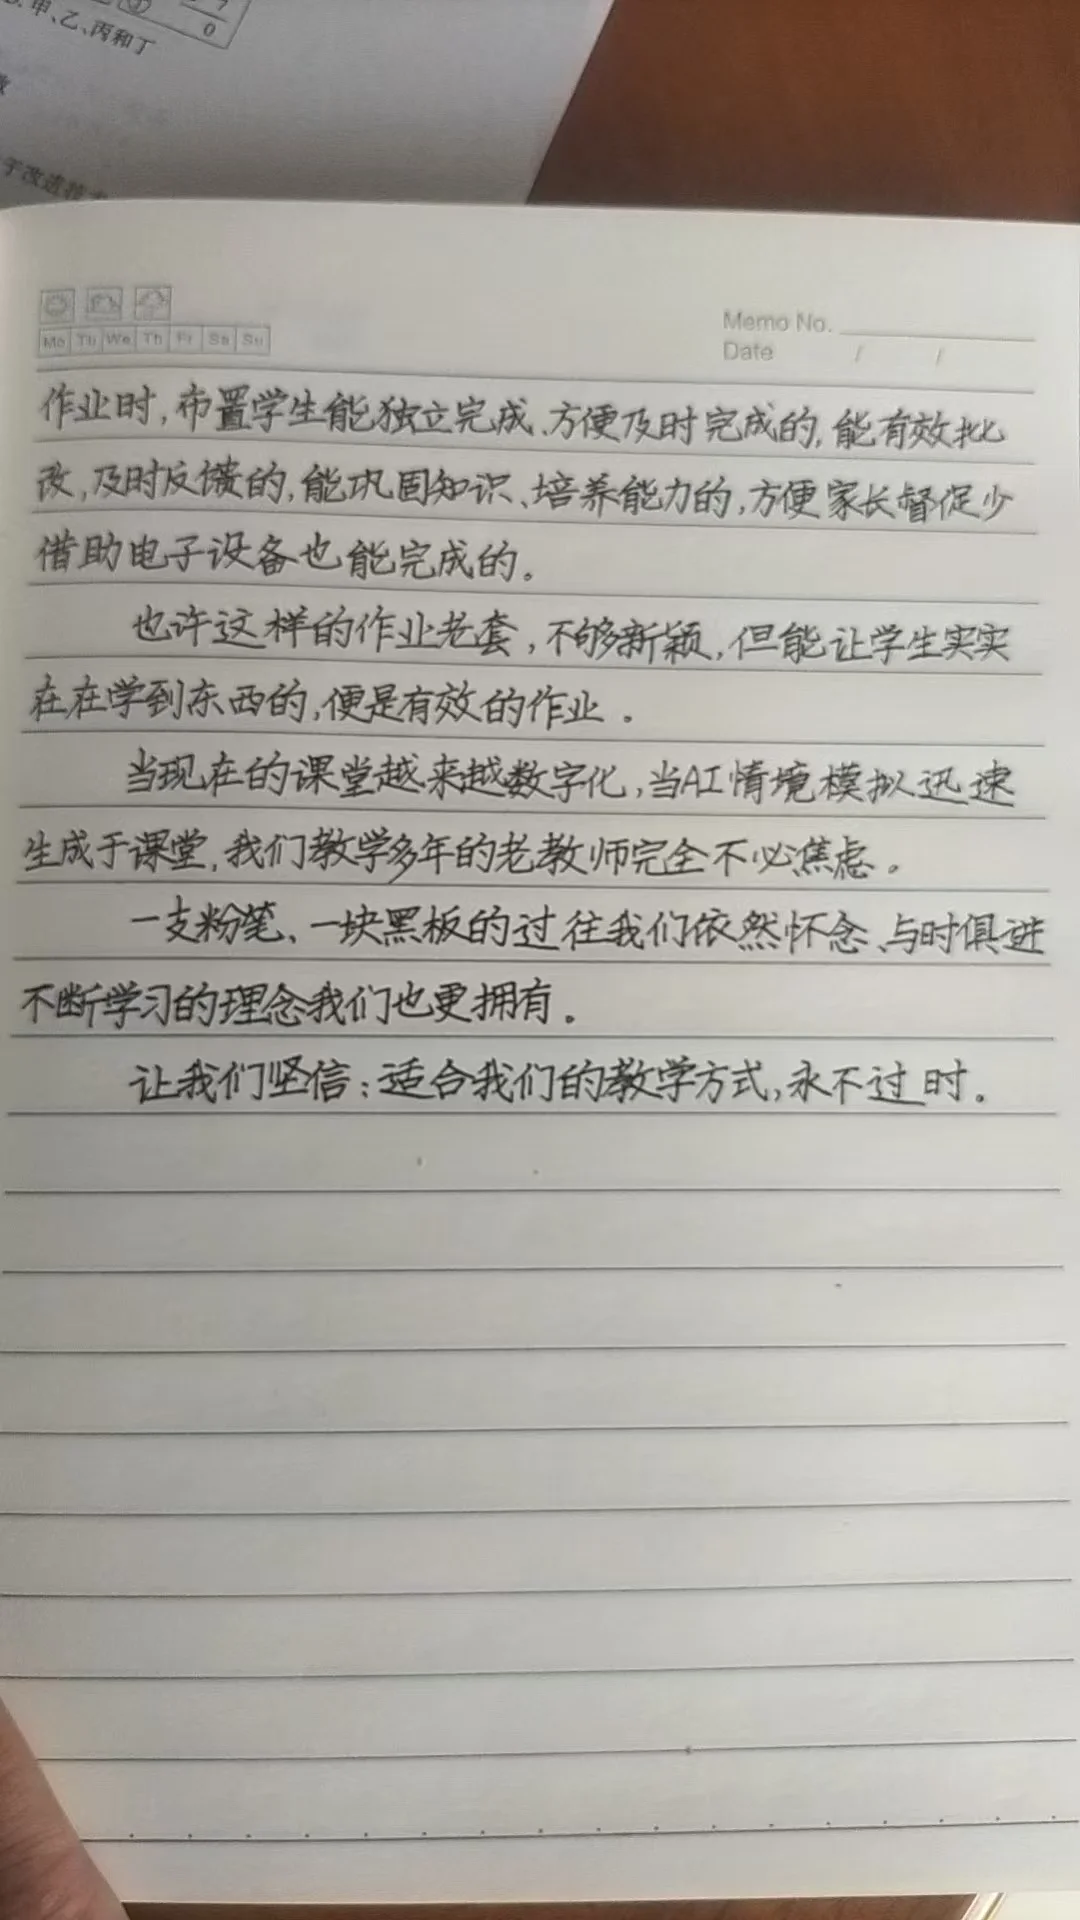 甲、乙、丙和丁
0
于改造技术
Mo Tu We Th Fr Sa Su
Memo No.
Date / /
作业时,布置学生能独立完成、方便及时完成的,能有效批
改,及时反馈的,能巩固知识、培养能力的,方便家长督促少
借助电子设备也能完成的。
也许这样的作业老套,不够新颖,但能让学生实实
在在学到东西的,便是有效的作业。
当现在的课堂越来越数字化,当AI情境模拟迅速
生成于课堂,我们教学多年的老教师完全不必焦虑。
一支粉笔、一块黑板的过往我们依然怀念、与时俱进
不断学习的理念我们也更拥有。
让我们坚信:适合我们的教学方式,永不过时。